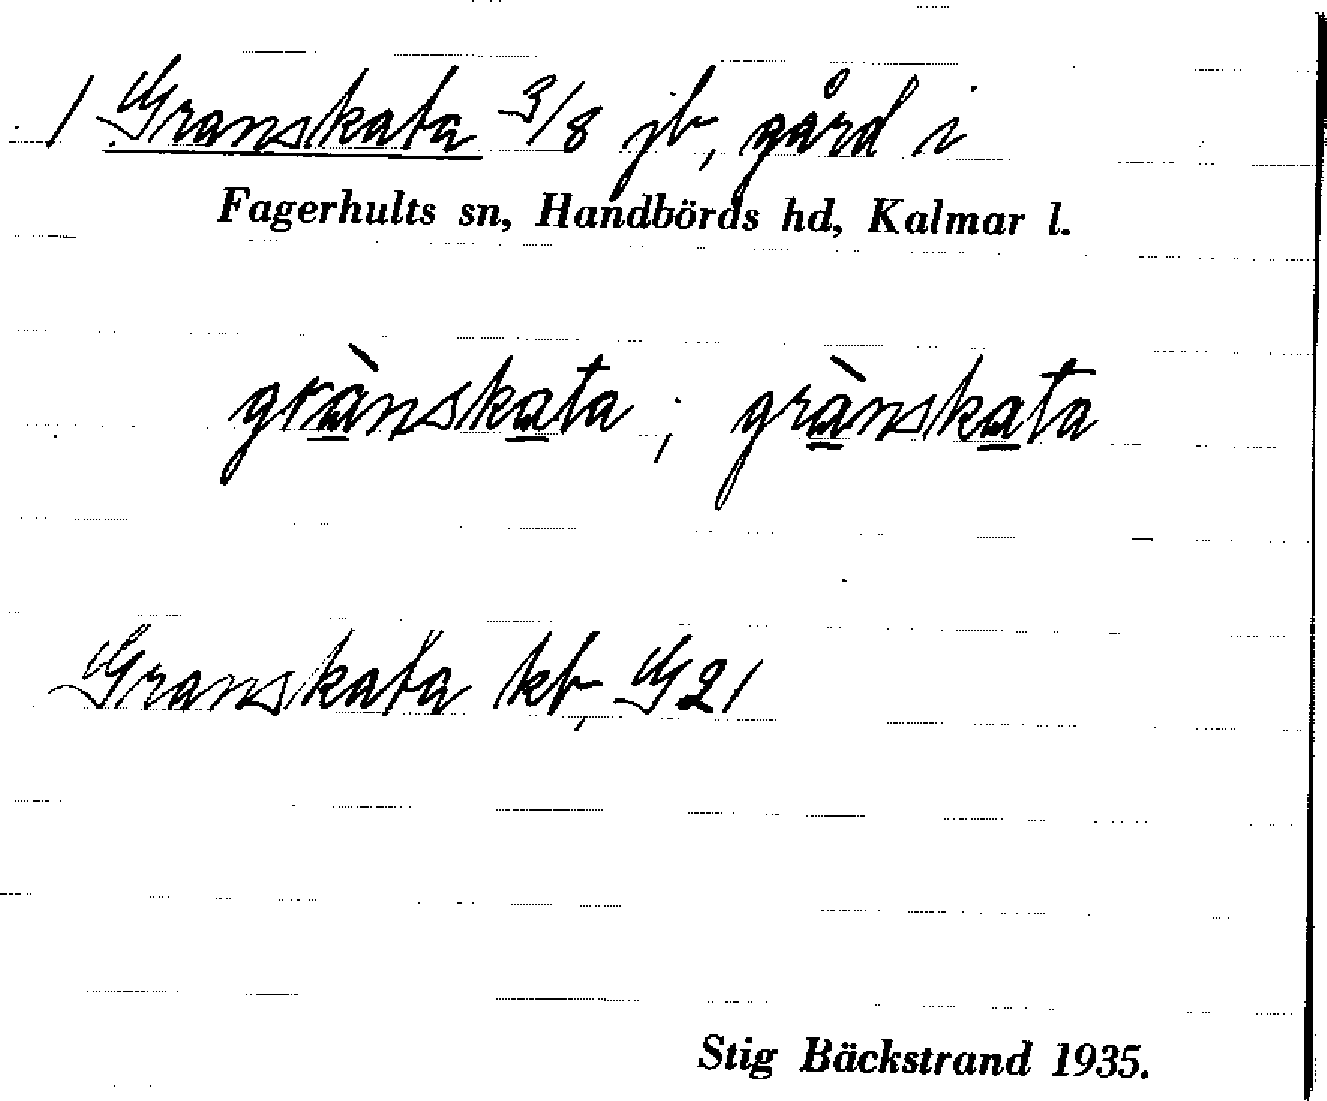 1 Granskata 3/8 jb, gård i
Fagerhults sn, Handbörds hd, Kalmar l.
grànskata ; grànskata
Granskata kb, G 21
Stig Bäckstrand 1935.